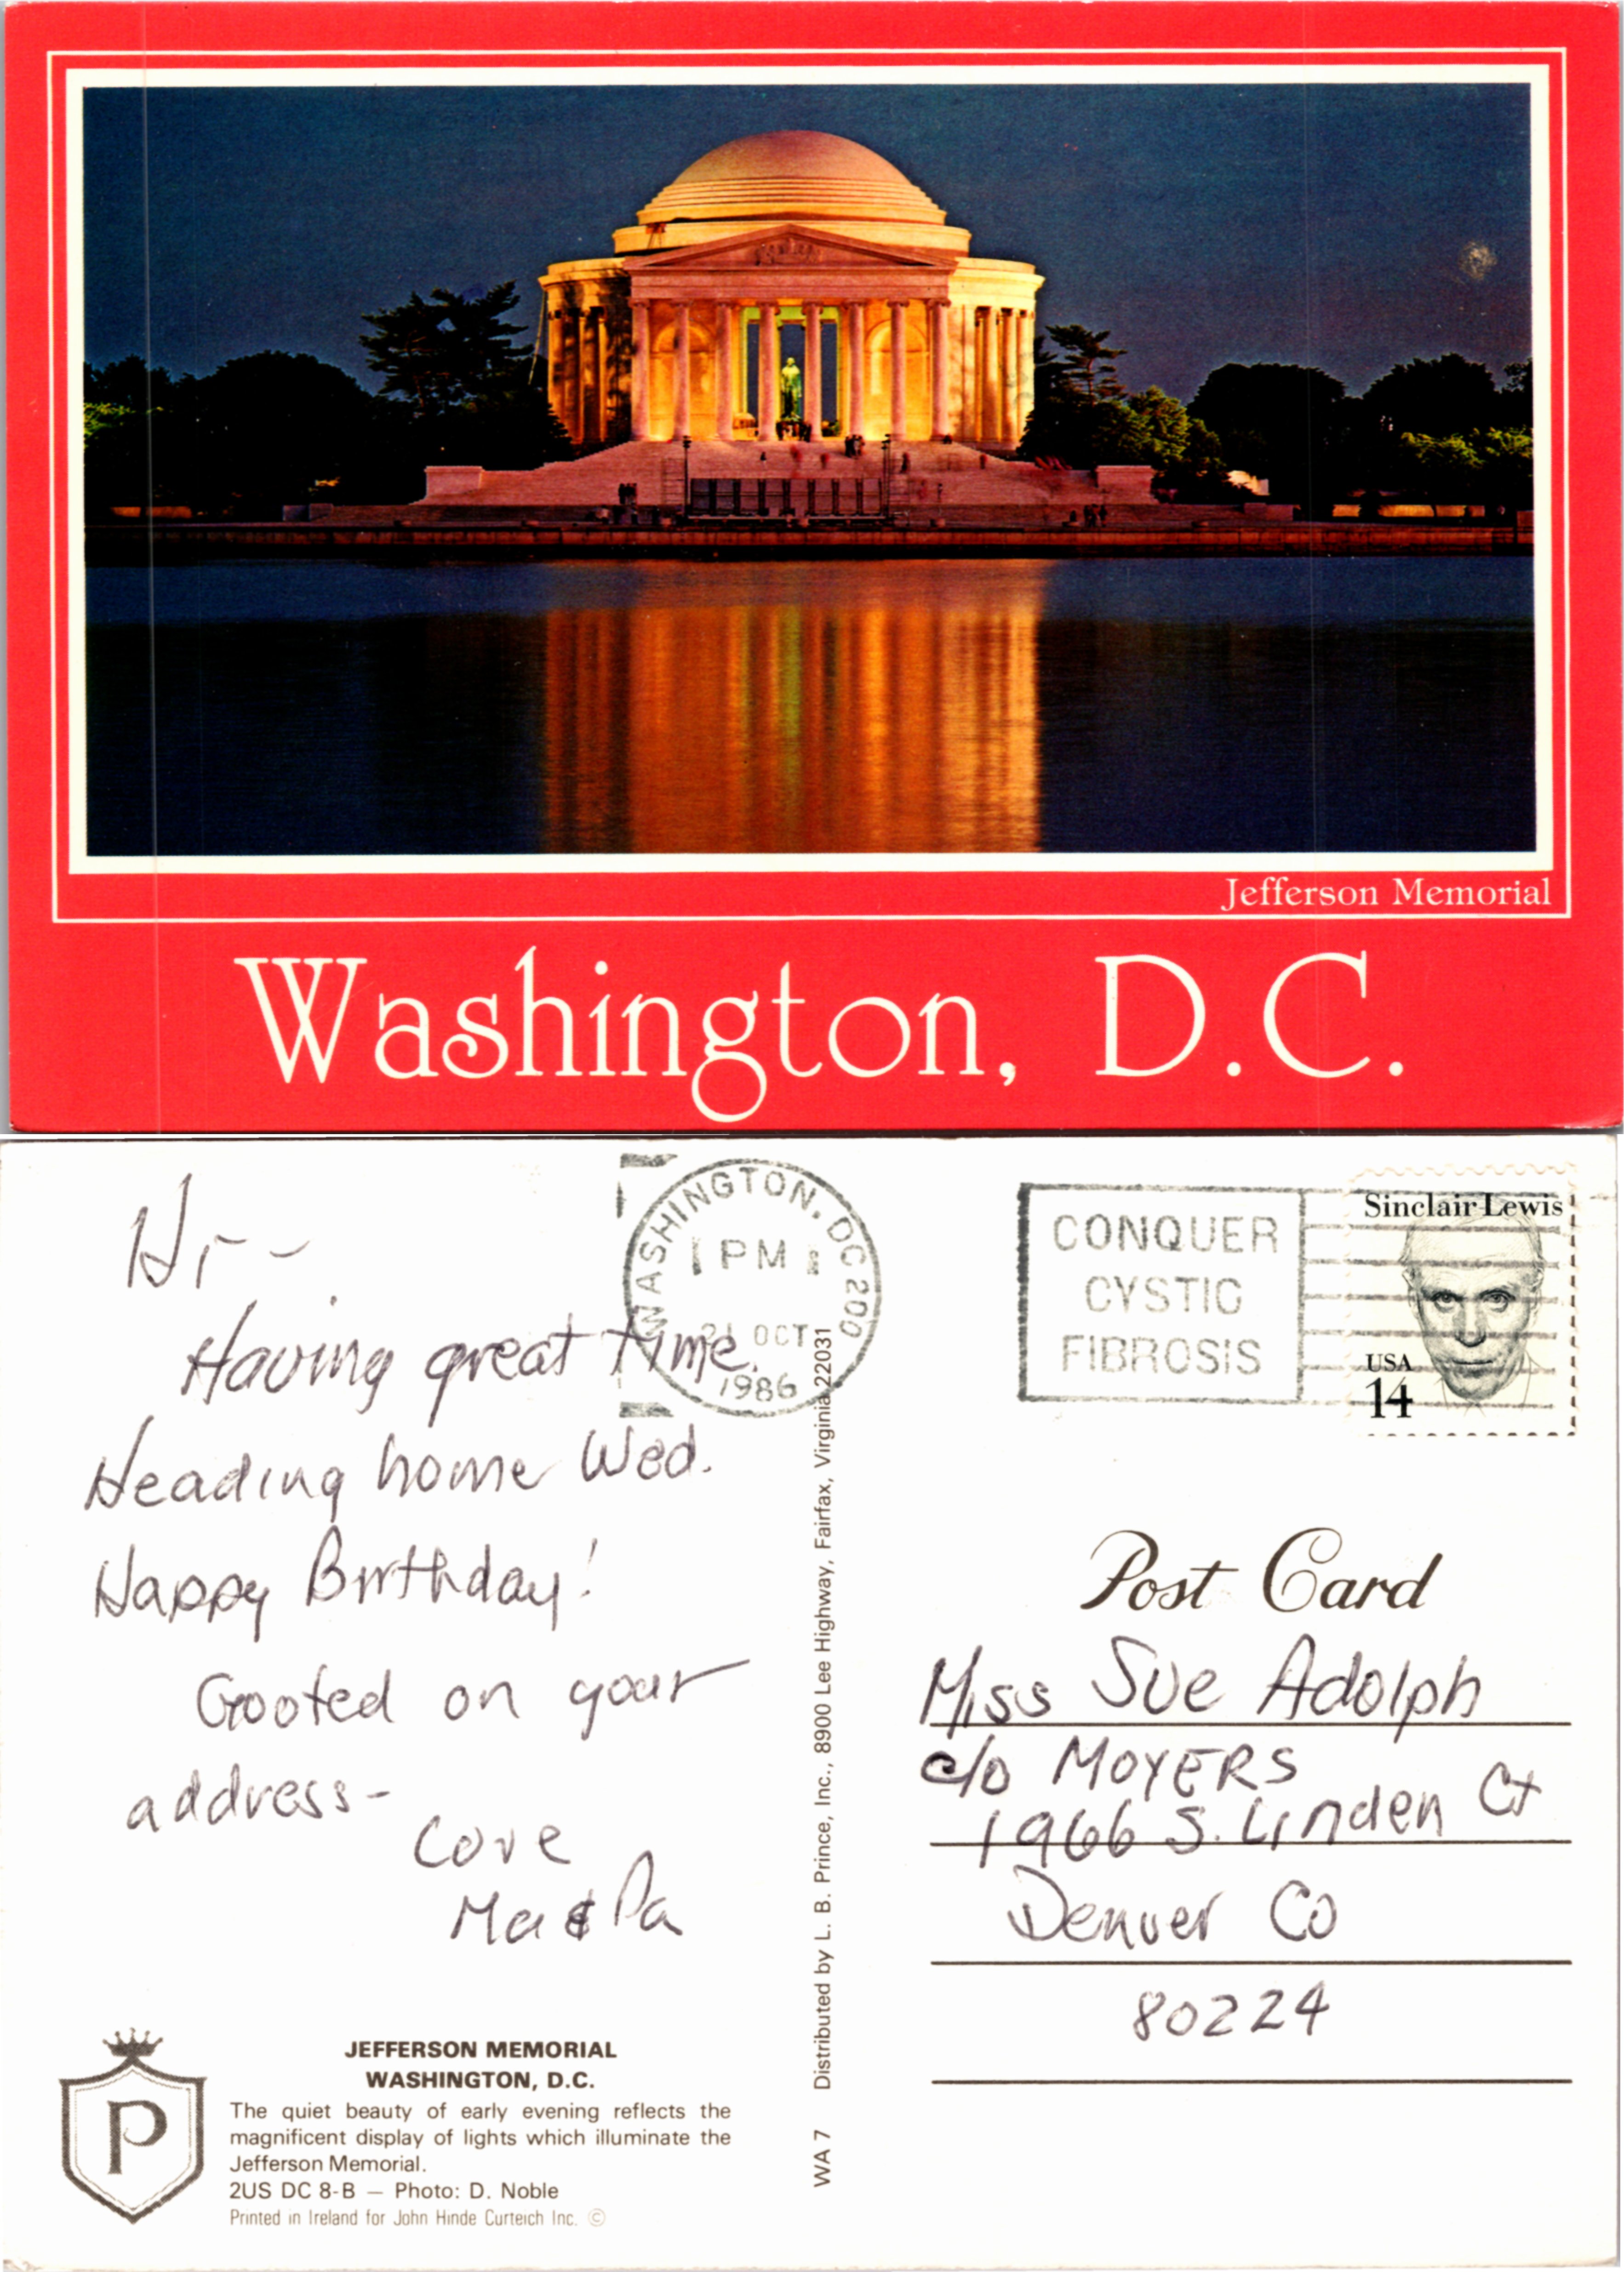 Jefferson Memorial
Washington, D.C.
Hi -
Having great time.
Heading home Wed.
Happy Birthday!
Goofed on your
address-
Love
Ma & Pa
WASHINGTON, DC 200
PM
OCT
1986
CONQUER
CYSTIC
FIBROSIS
Sinclair Lewis
USA
14
Post Card
Miss Sue Adolph
c/o MOYERS
1966 S. Linden Ct
Denver Co
80224
WA 7 Distributed by L. B. Prince, Inc., 8900 Lee Highway, Fairfax, Virginia 22031
P
JEFFERSON MEMORIAL
WASHINGTON, D.C.
The quiet beauty of early evening reflects the
magnificent display of lights which illuminate the
Jefferson Memorial.
2US DC 8-B — Photo: D. Noble
Printed in Ireland for John Hinde Curteich Inc. ©